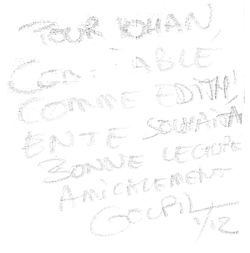 POUR YOHAN,
COMME EDITH!
EN TE SOUHAITA
BONNE LECTURE
AMICALEMENT
GOUPIL
1/12